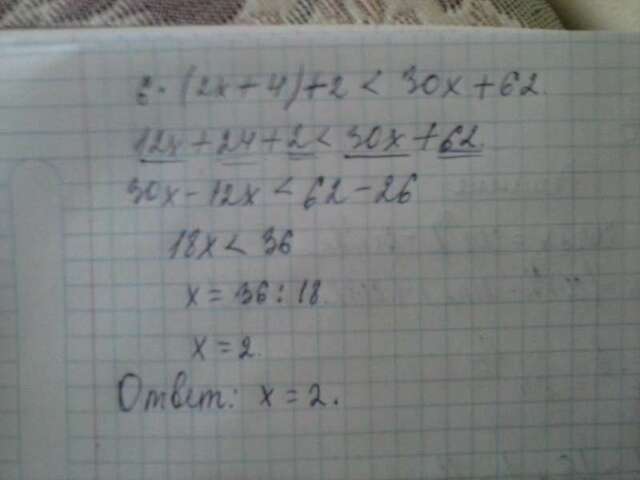 6·(2x+4)+2 < 30x+62.
12x+24+2 < 30x+62
30x-12x < 62-26
18x < 36
x = 36 : 18
x = 2.
Ответ: x = 2.